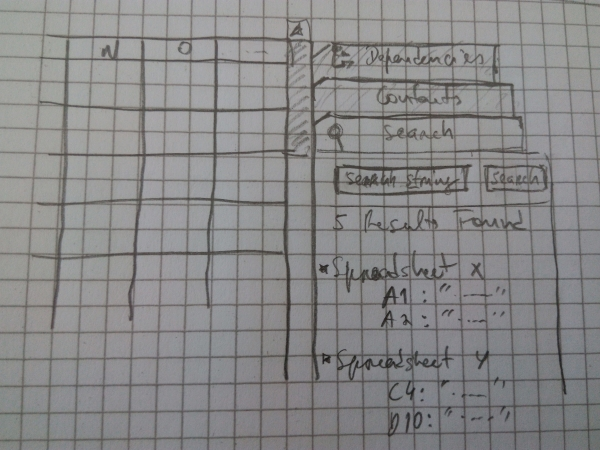 N O ---
Dependencies
Contents
Search
Search string Search
5 Results Found
* Spreadsheet X
A1: "----"
A2: "----"
* Spreadsheet Y
C4: "----"
D10: "----"